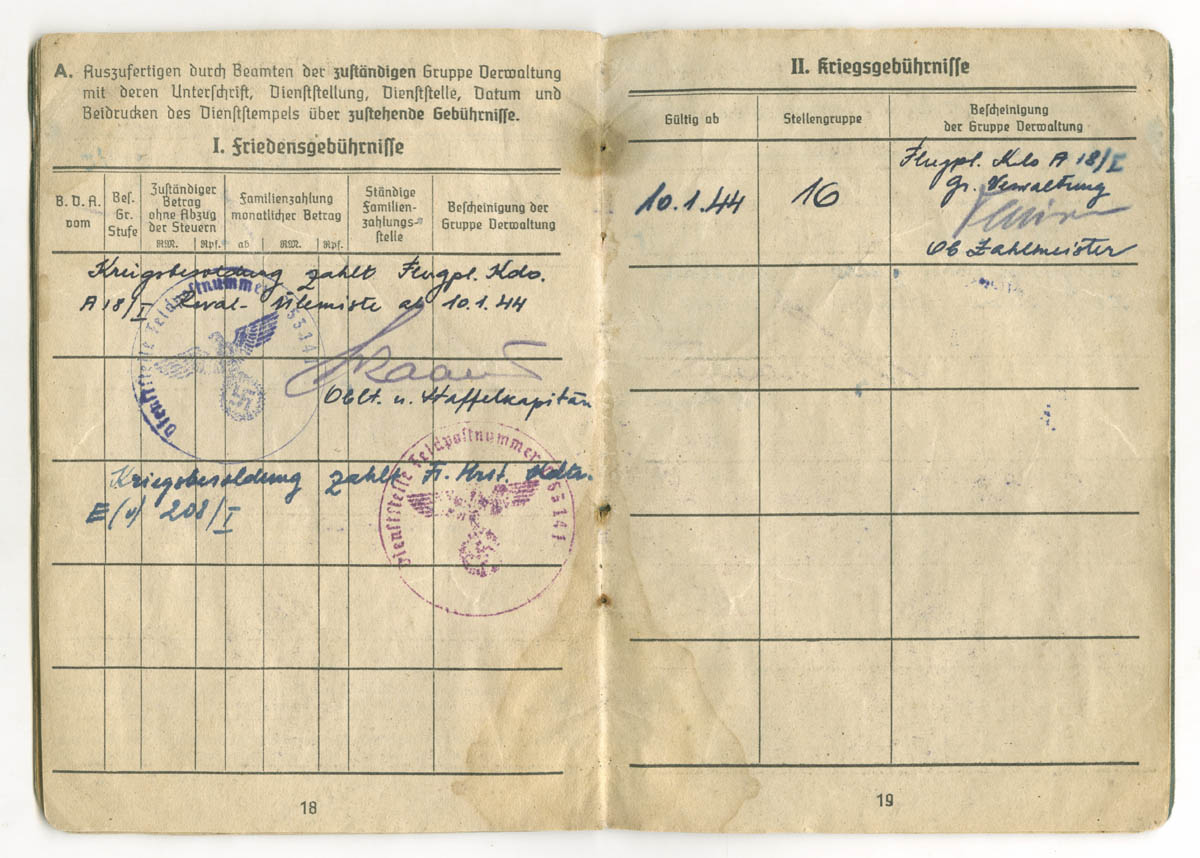 A. Auszufertigen durch Beamten der zuständigen Gruppe Verwaltung
mit deren Unterschrift, Dienststellung, Dienststelle, Datum und
Beidrucken des Dienststempels über zustehende Gebührnisse.
I. Friedensgebührnisse
B. D. A.
vom
Bes.
Gr.
Stufe
Zuständiger
Betrag
ohne Abzug
der Steuern
RM. Rpf.
Familienzahlung
monatlicher Betrag
ab RM. Rpf.
Ständige
Familien-
zahlungs-
stelle
Bescheinigung der
Gruppe Verwaltung
Kreigsbesoldung zahlt Flugpl. Kdo.
A 18/I Reval-Ülemiste ab 10.1.44
Dienststelle Feldpostnummer
Oblt. u. Staffelkapitän
Kriegsbesoldung zahlt Fl. Hrst. Kdtr.
E (v) 208/I
Dienststelle Feldpostnummer
18
II. Kriegsgebührnisse
Gültig ab
Stellengruppe
Bescheinigung
der Gruppe Verwaltung
10.1.44
16
Flugpl. Kdo A 18/I
Gr. Verwaltung
Ob Zahlmeister
19